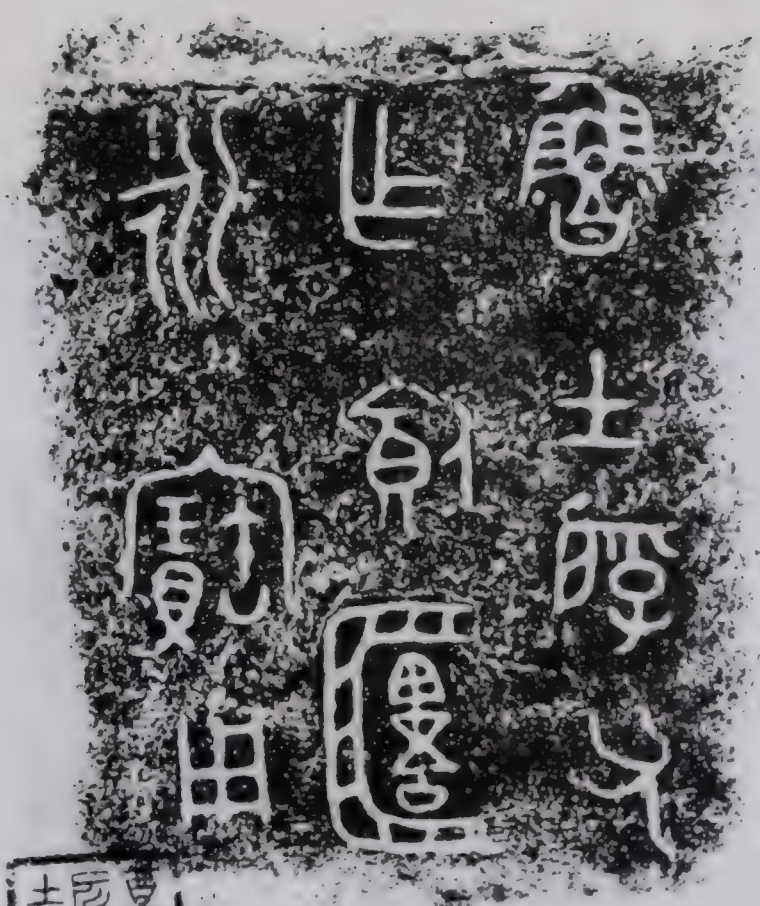 魯士浮父
乍飤簠
永寶用